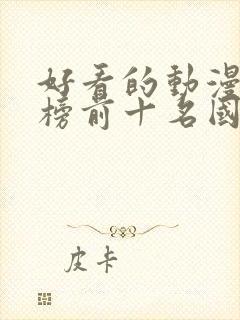 好看的動漫
榜前十名國
皮卡